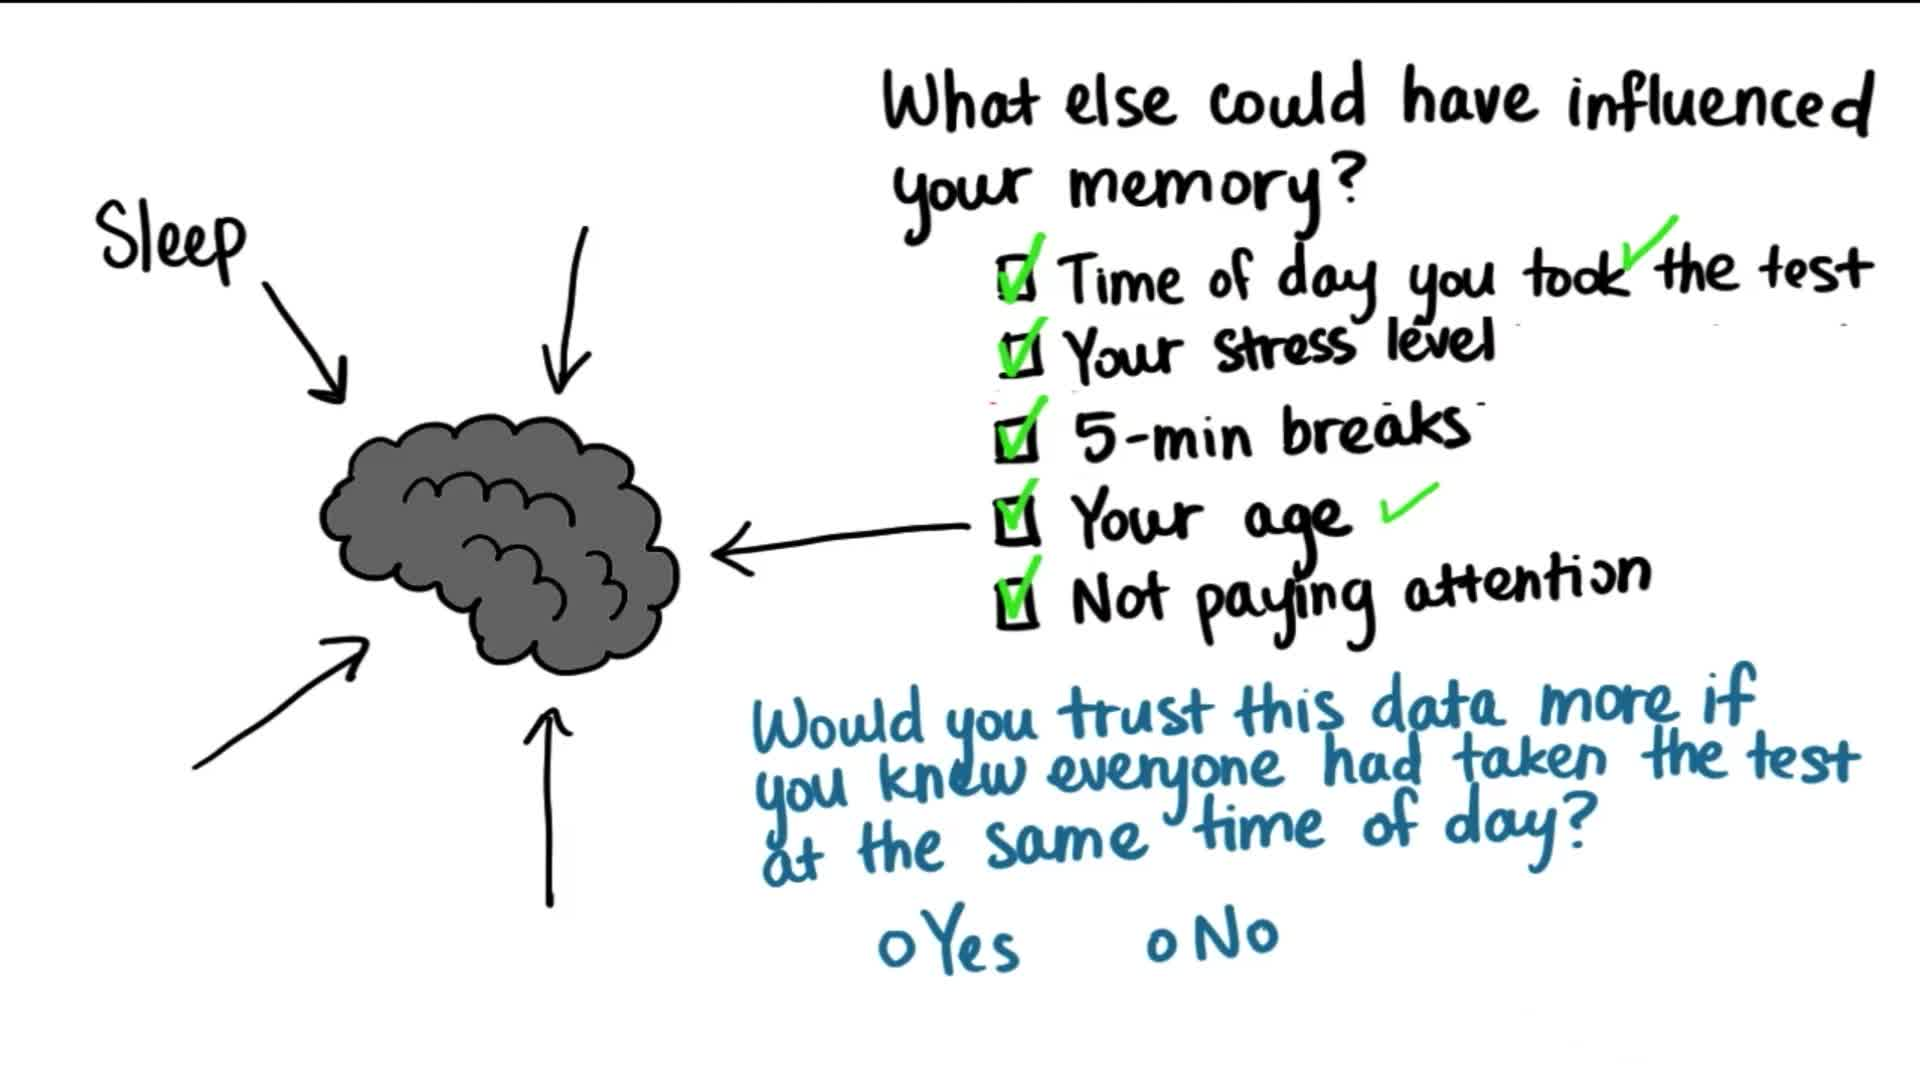 Sleep
What else could have influenced
your memory?
Time of day you took the test
Your stress level
5-min breaks
Your age
Not paying attention
Would you trust this data more if
you knew everyone had taken the test
at the same time of day?
Yes No